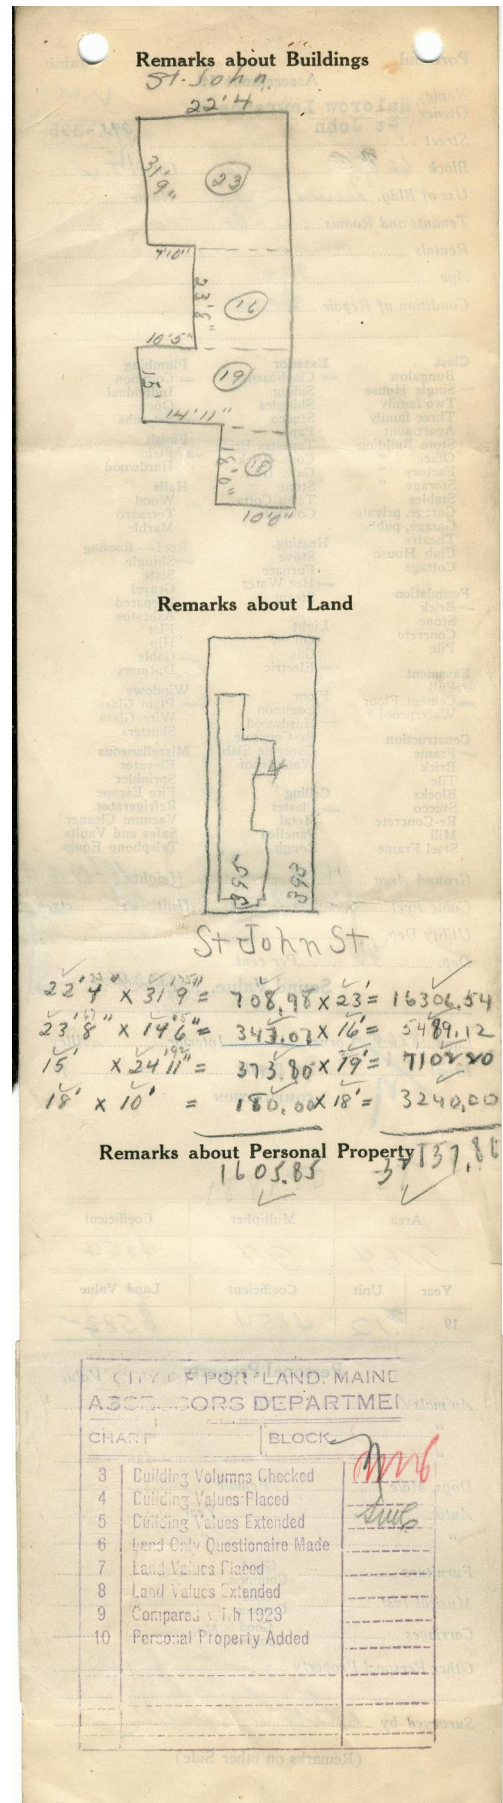 Remarks about Buildings
St. John
22'4
31'
9"
23
7'10"
23'8"
16
10'5"
15'
19
14'11"
18'0"
18
10'0"
Remarks about Land
14
395
393
St John St
22'4" x 31'9" = 708.98 x 23' = 16306.54
23'8" x 14'6" = 343.07 x 16' = 5489.12
15' x 24'11" = 373.80 x 19' = 7102.20
18' x 10' = 180.00 x 18' = 3240.00
Remarks about Personal Property
1605.85
CITY OF PORTLAND, MAINE
ASSESSORS DEPARTMEN
CHART BLOCK
3 Building Volumns Checked
4 Building Values Placed
5 Building Values Extended
6 Land Only Questionaire Made
7 Land Values Placed
8 Land Values Extended
9 Compared with 1923
10 Personal Property Added